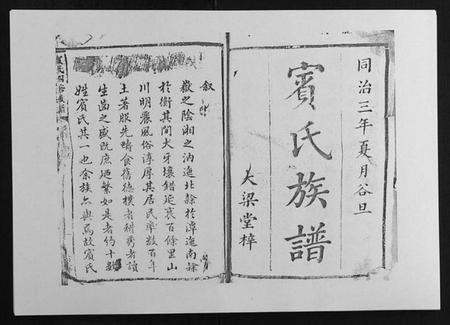 同治三年夏月谷旦
賓氏族譜
大梁堂梓
叙
嶽之陰湘之汭迤北隸於潭迤南隸
於衡其間犬牙壤錯延袤百餘里山
川明農風俗淳厚其居民率數百年
土著服先疇食舊德樸者耕秀者讀
生齒之盛既庶廼繁如是者約十數
姓賓氏其一也余族亦與焉故賓氏